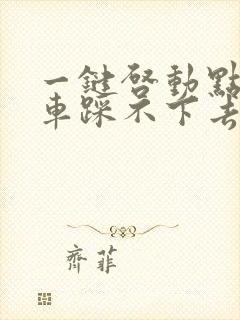 一鍵啓動點
車踩不下去
齊菲